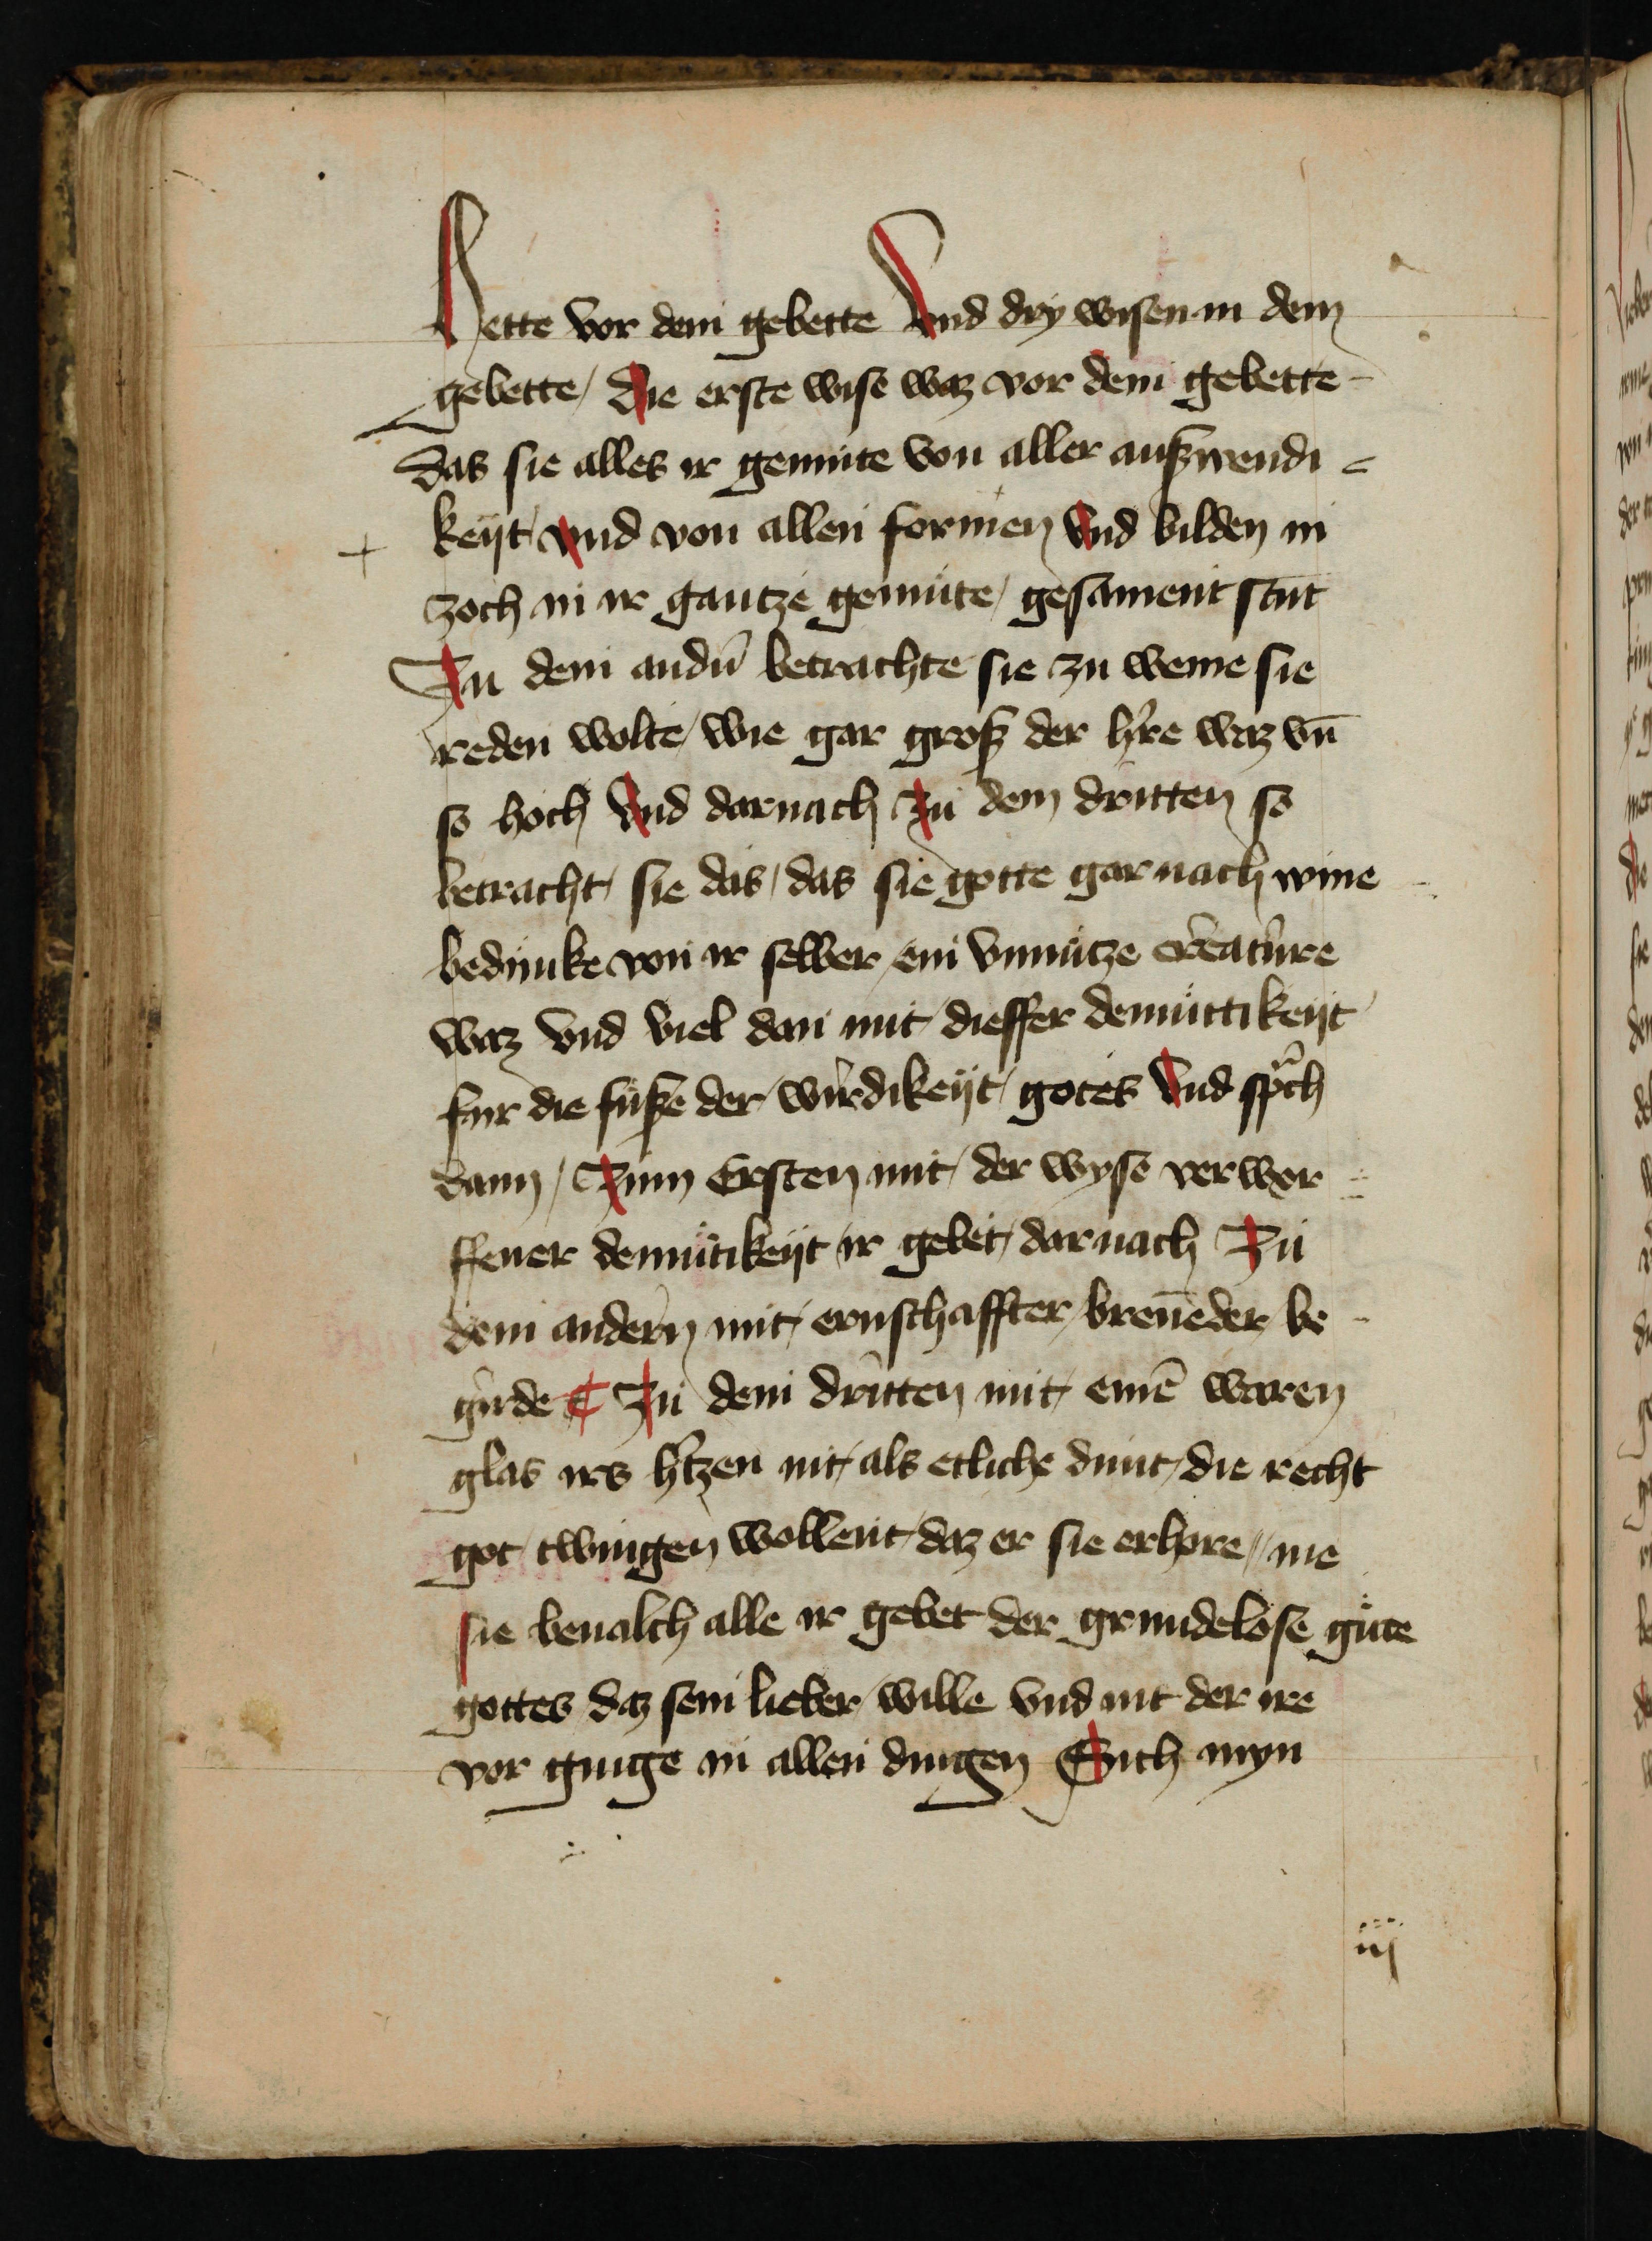 Hette vor dem gebette Vnd dry wisen in dem
gebette / Die erste wise waz vor dem gebette
das sie alles ir gemute von aller außwendi
keijt Vnd von allen formen Vnd bilden in
zoch in ir gantze gemute / gesament
Zu dem andn̄ betrachte sie zu weme sie
reden wolte / wie gar groß der hre waz vn̄
so hoch Vnd darnach Zu dem dritten so
betracht sie das / das sie gotte gar nach
bedunke von ir selber / ein vnnutze creature
waz vnd viel dan mit dieffer demuttikeijt
fur die fuße der wirdikeijt gotes Vnd spͥch
dann / Zum Ersten mit der wyse verwor
ffener demutikeijt ir gebet / darnach Zu
dem andern mit ernschaffter / bren̄eder be
girde ¶ Zu dem dritten mit einē waren
glas irs htzen nit als etliche dunt / die recht
got twingen wollent / daz er sie erhore // nie
sie beualch alle ir gebet der grundelose güte
gottes daz sein lieber wille vnd nit der ire
vor ginge in allen dingen Sich myn
iij